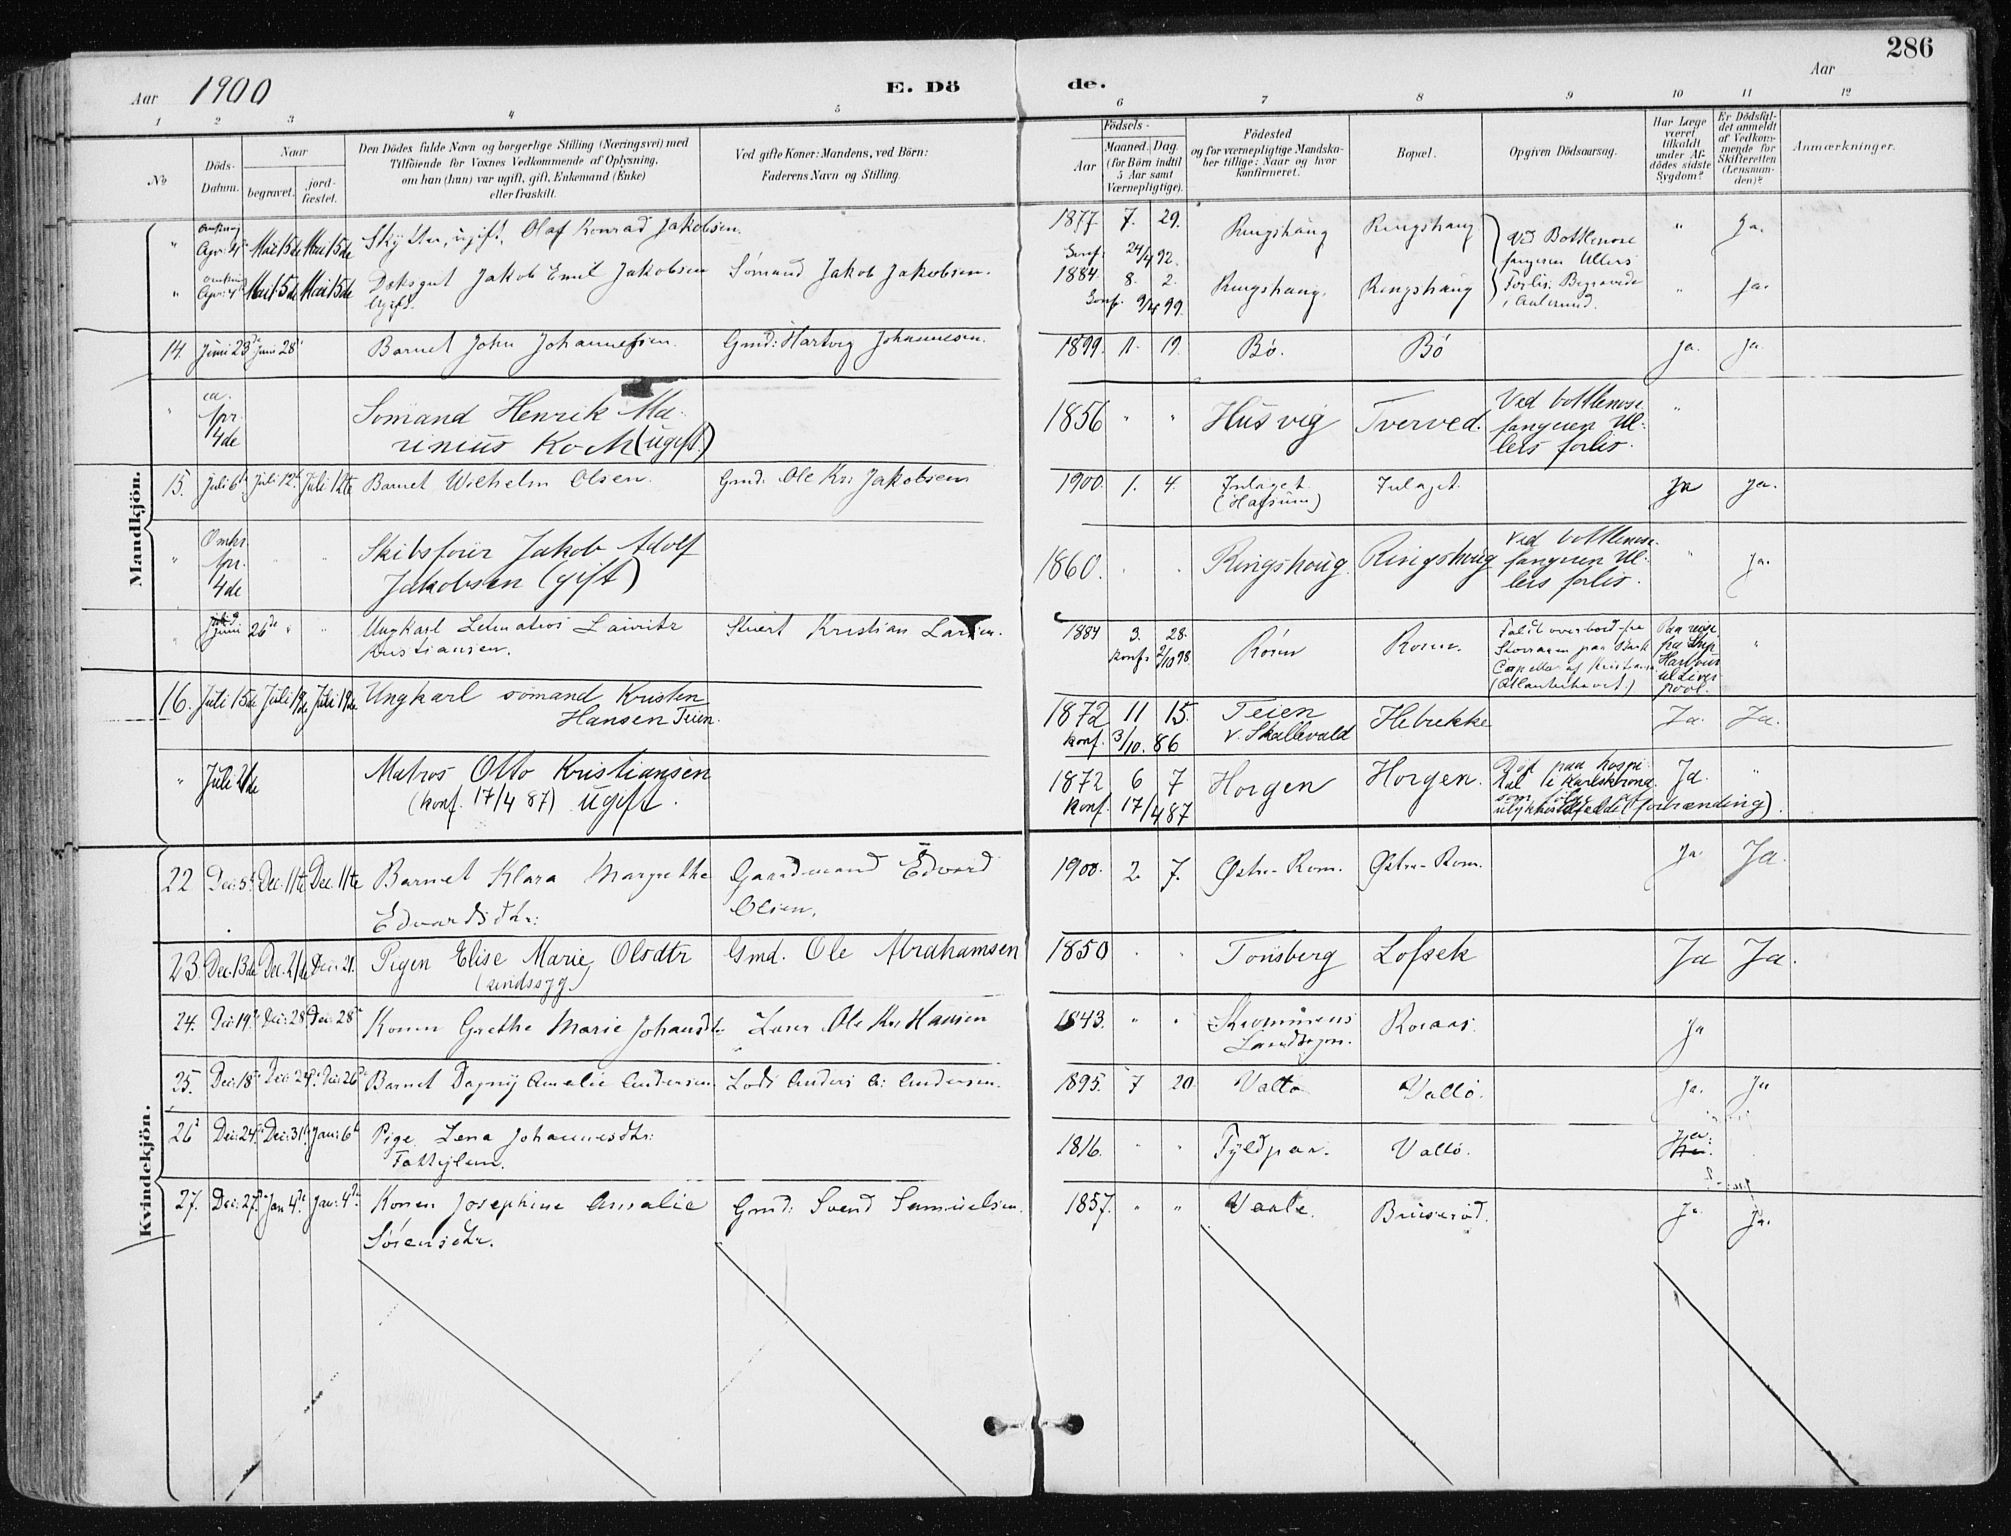 286
Aar 1900
E. Dö de.
Aar
1 2 3 4 5 6 7 8 9 10 11 12
No
Döds-Datum.
Naar
begravet.
jord-fæstet.
Den Dödes fulde Navn og borgerlige Stilling (Næringsvei) med
Tilföiende for Voxnes Vedkommende af Oplysning,
om han (hun) var ugift, gift, Enkemand (Enke)
eller fraskilt.
Ved gifte Koner: Mandens, ved Börn:
Faderens Navn og Stilling.
Födsels-
Aar
Maaned. Dag.
(for Börn indtil
5 Aar samt
Værnepligtige).
Födested
og for værnepligtige Mandska-
ber tillige: Naar og hvor
konfirmeret.
Bopæl.
Opgiven Dödsaarsag.
Har Læge
været
tilkaldt
under Af-
dödes sidste
Sygdom?
Er Dödsfal-
det anmeldt
af Vedkom-
mende for
Skifteretten
(Lensman-
den)?
Anmærkninger.
Mandkjön.
" omkring Apr. 4de Mai 15de Mai 15de Skytter, ugift, Olaf Konrad Jakobsen. 1877. 7. 29. Ringshaug Ringshaug Ved Bottlenose " Ja.
Konf. 24/4 92. fangeren Ullers
" omkring Apr. 4de Mai 15de Mai 15de Doksgut Jakob Emil Jakobsen Sømand Jakob Jakobsen. 1884. 8. 2. Ringshaug. Ringshaug Forlis. Begravede " Ja.
Ugift. Konf. 9/4 99.
14. Juni 23de Juni 28de Barnet John Johannessen. Gmd: Hartvig Johannesen. 1899. 11. 19. Bö. Bö Ja. Ja.
" ca. Apr. 4de Sömand Henrik Ma- 1856 " " Husvig Tverved. Ved bottlenose- "
rinius Koch (ugift.) fangeren Ul-
lers forlis.
15. Juli 6te Juli 12te Juli 12te Barnet Wilhelm Olsen. Gmd. Ole Kr. Jakobsen 1900. 1. 4. Inlaget Inlaget. Ja Ja.
" Omkr. Apr. 4de " " Skibsförer Jakob Adolf 1860. " " Ringshoug. Ringshoug Ved bottlenose- " Ja.
Jakobsen (gift) fangeren Ul-
lers forlis.
" Juni 26de " " Ungkarl Letmatros Lauritz Stuert Kristian Larsen. 1884 3. 28. Römm Romm. Faldt overbord fra Paa reise "
Kristiansen. konf. 2/10 98. paa Bark fra Ship
Capella af Kristiania
(Atlanterhavet.) til Liver
pool.
16. Juli 15de Juli 19de Juli 19de Ungkarl sömand Kristen 1872 11 15. Teien Hebekke Ja. Ja.
Hansen Teien. konf. 3/10. 86 v. Skallevald
" Juli 21de Matros Otto Kristiansen 1872 6 7 Horgen Horgen. Död paa hospi- Ja. "
(konf. 17/4 87) ugift. konf. 17/4 87 tal i Karlskrona
som fölge af
ulykkestilfælde (forbrænding).
Kvindekjön.
22 Dec: 5te Dec. 11te Dec. 11te Barnet Klara Margrethe Gaardmand Edvard 1900. 2. 7. Østre-Rom. Østre-Rom. Ja Ja.
Edvardsdtr: Olsen.
23. Dec. 13de Dec. 21de Dec. 21. Pigen Elise Marie Olsdtr Gmd. Ole Abrahamsen 1850 " " Tönsberg Lofsek Ja Ja.
(sindssyg)
24. Dec: 19de Dec: 28de Dec: 28de Konen Grethe Marie Johansdtr. Ole Kr. Hansen 1843. " " Strömmens Roraas. Ja
25. Dec: 18de Dec: 24de Dec: 26de Barnet Dagny Amalie Andersen Lods Anders A: Andersen. 1895. 7 20 Vallö Vallö. Ja. Ja
26 Dec: 24de Dec: 31te Jan: 6te Pige. Lena Johannesdtr: 1816. " " Fyldpaa. Vallö. Ja.
Fattiglem.
27. Dec: 27de Jan 4de Jan: 4de Konen Josephine Amalie Gmd: Svend Samuelsen. 1857. " " Vaale. Bruseröd. Ja Ja.
Sörensdtr.